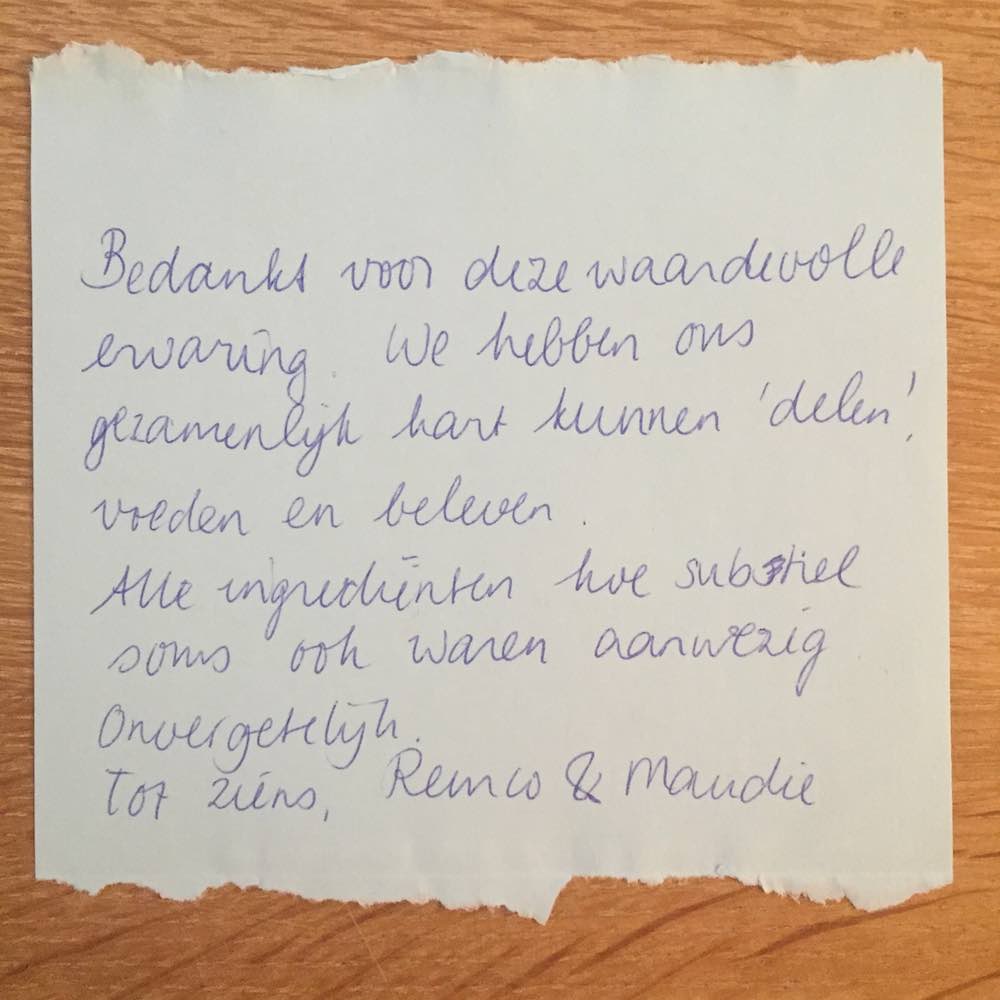 Bedankt voor deze waardevolle
ervaring. We hebben ons
gezamenlijk hart kunnen 'delen',
voeden en beleven.
Alle ingrediënten hoe subtiel
soms ook waren aanwezig
Onvergetelijk.
Tot ziens, Remco & Maudie